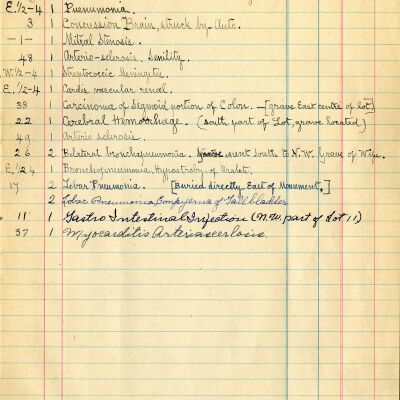 E. 1/2-4 1 Pneumonia.
3 1 Concussion Brain, struck by Auto.
-1- 1 Mitral Stenosis.
48 1 Arterio-sclerosis, Senility.
W. 1/2-4 1 Streptococcic Meningitis.
E. 1/2-4 1 Cardio vascular renal.
33 1 Carcinoma of Segmoid portion of Colon. - [grave East centre of lot]
22 1 Cerebral Hemorrhage. (south part of Lot, grave located)
49. 1 Arterio sclerosis.
26 2 Bilateral bronchopneumonia. next South to N.W. Grave of Wife.
E, 1/2 4 1 Bronchopneumonia, Hypostroby of
17 2 Lobar Pneumonia. [Buried directly East of Monument.]
2 Lobac Pneumonia Empyema of Gallbladder
11 1 Gastro Intestinal Injection (N.W. part of Lot 11)
37 1 Myocarditis Arteriascerlosis.